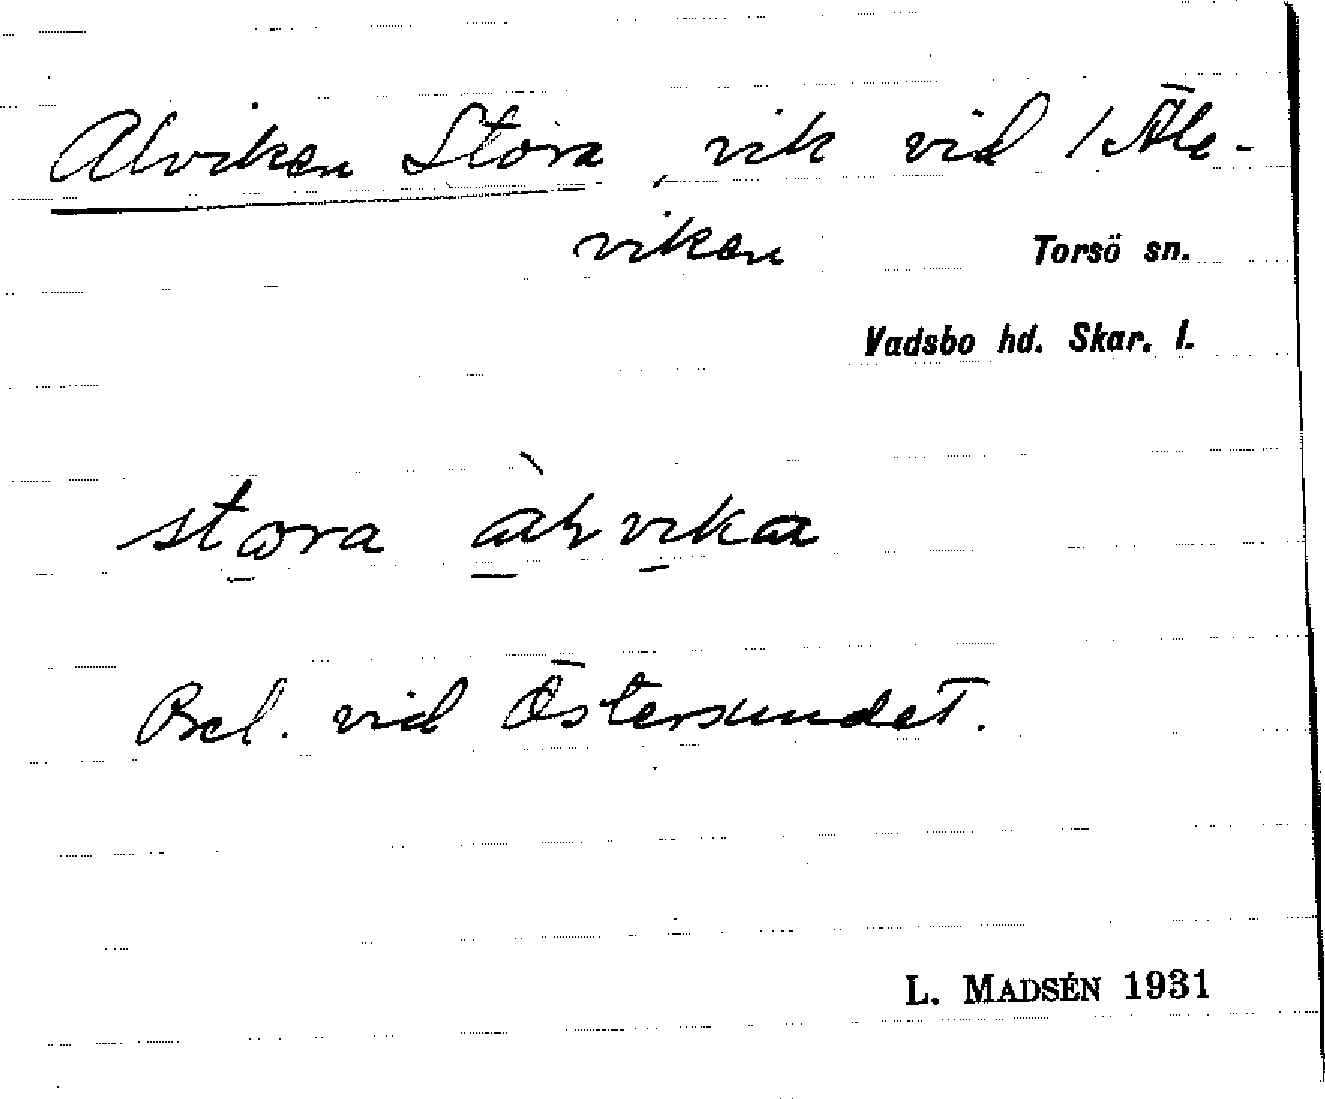 Alviken Stora, vik vid 1 Äle-
viken
Torsö sn.
Vadsbo hd. Skar. l.
stora
Bel. vid Östersundet.
L. MADSÉN 1931